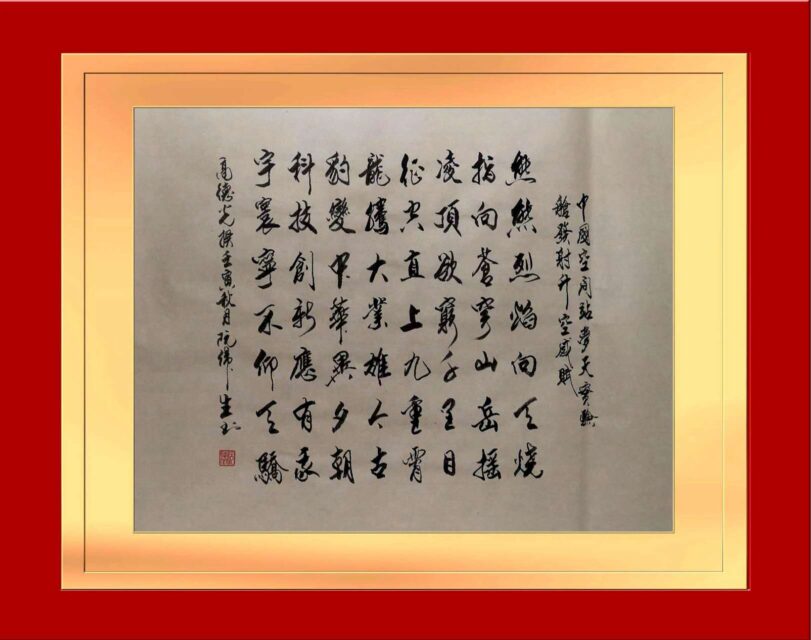 中國空间站夢天實驗
艙發射升空感賦
熊熊烈焰向天燒
指向蒼穹山岳摇
凌頂欲窮千里目
征空直上九重霄
龍騰大業雄今古
豹變中華異夕朝
科技創新應有我
宇寰寧不仰天驕
高德光撰壬寅秋月阮生书